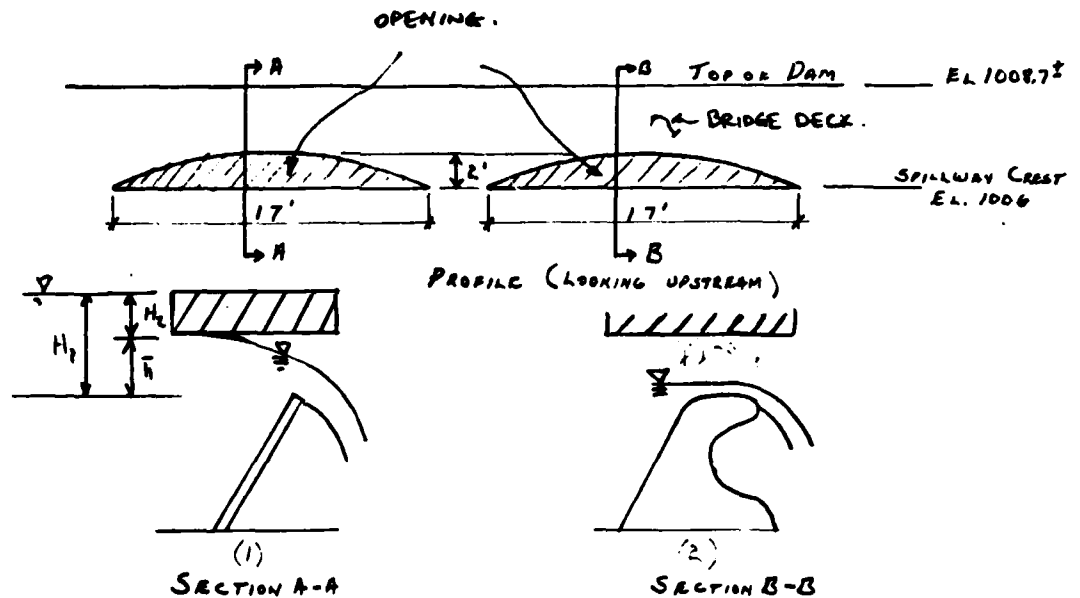 OPENING.
A
B
TOP OF DAM
EL 1008.7±
BRIDGE DECK.
2'
SPILLWAY CREST
EL. 1006
17'
17'
A
B
PROFILE (LOOKING UPSTREAM)
H₂
H₁
h̄
(1)
(2)
SECTION A-A
SECTION B-B